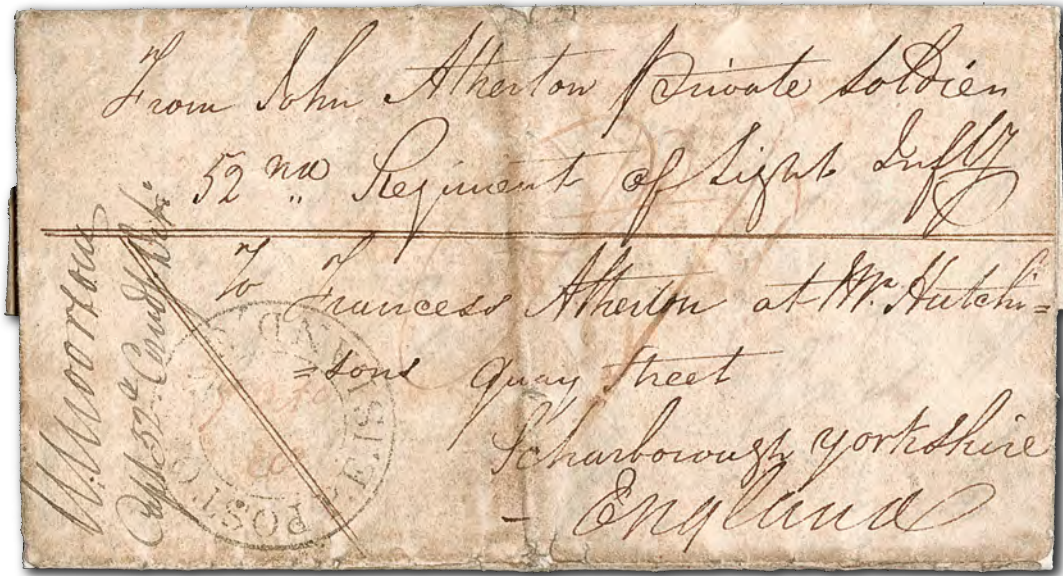 From John Atherton Private Soldier
52nd Regiment of Light Infty
To Francess Atherton at Mr. Hutchi=
=sons Quay Street
Scharborough Yorkshire
England
Capt 52d
POST